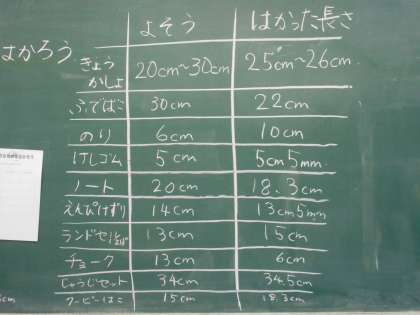 よそう はかった長さ
はかろう
きょうかしょ 20cm～30cm 25cm～26cm
ふでばこ 30cm 22cm
のり 6cm 10cm
けしゴム 5cm 5cm5mm
ノート 20cm 18.3cm
えんぴつけずり 14cm 13cm5mm
ランドセル 13cm 15cm
チョーク 13cm 6cm
じゅうじセット 34cm 34.5cm
クーピーはこ 15cm 18.3cm